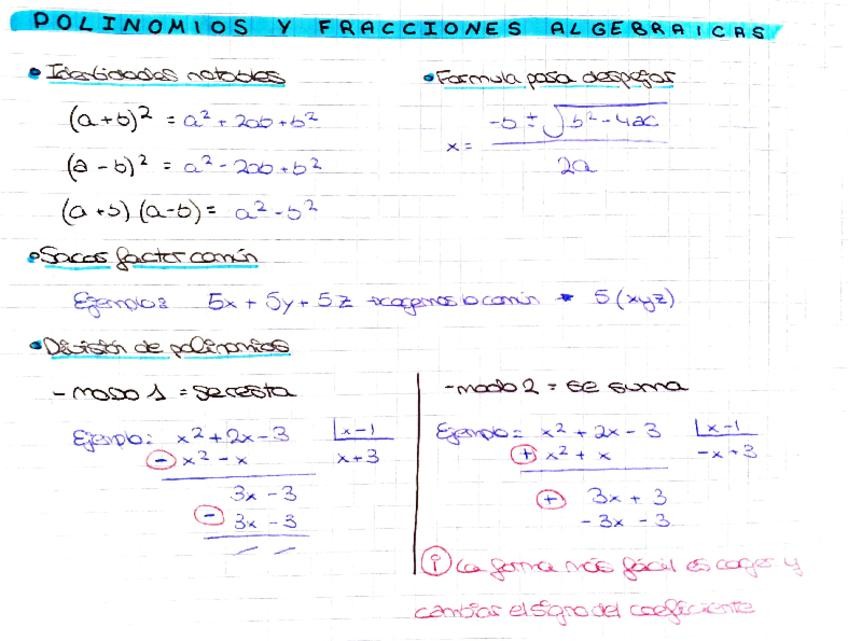 POLINOMIOS Y FRACCIONES ALGEBRAICAS
• Identidades notables
(a+b)² = a² + 2ab + b²
(a - b)² = a² - 2ab + b²
(a + b) (a - b) = a² - b²
• Formula para despejar
x = -b ± √b² - 4ac
2a
• Sacar factor común
Ejemplo: 5x + 5y + 5z → cogemos lo común → 5 (xyz)
• División de polinomios
- modo 1 = se resta
Ejemplo: x² + 2x - 3 | x - 1
- x² - x x + 3
3x - 3
- 3x - 3
- modo 2 = se suma
Ejemplo = x² + 2x - 3 | x - 1
+ x² + x - x + 3
+ 3x + 3
- 3x - 3
¡ La forma más fácil es coger y
cambiar el signo del coeficiente